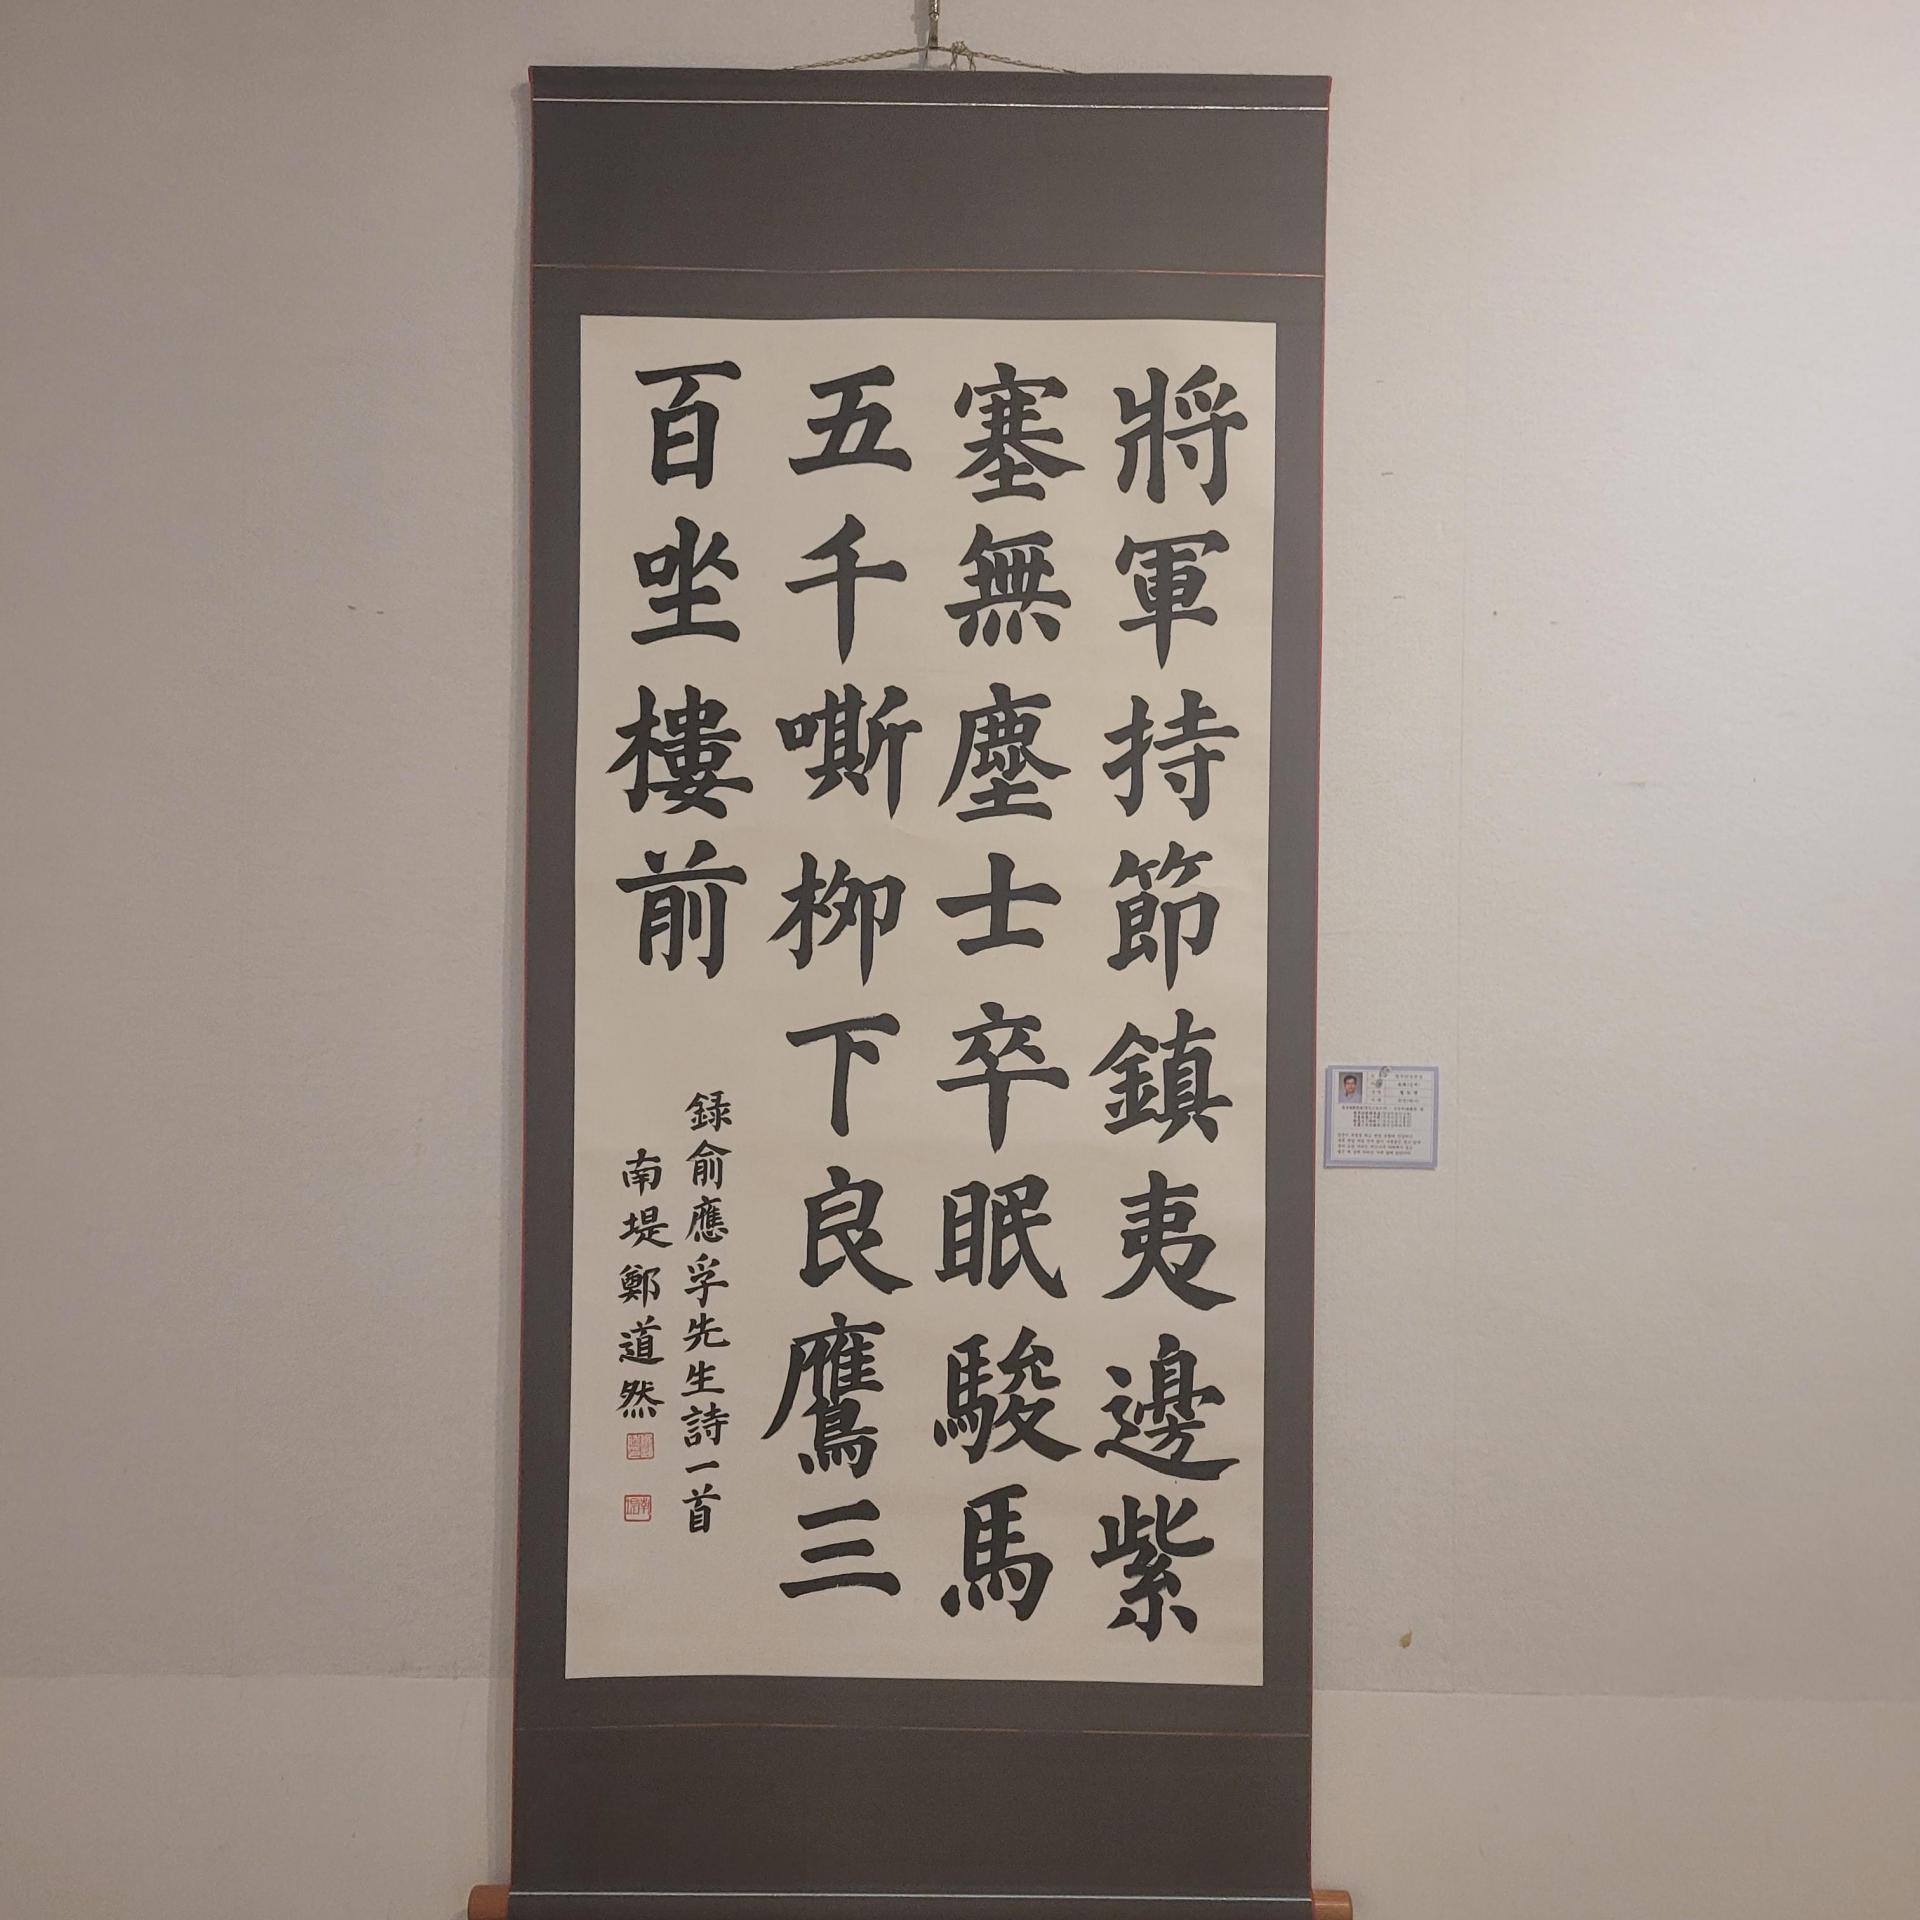 將軍持節鎮夷邊紫
塞無塵士卒眠駿馬
五千嘶柳下良鷹三
百坐樓前
錄俞應孚先生詩一首
南堤鄭道然